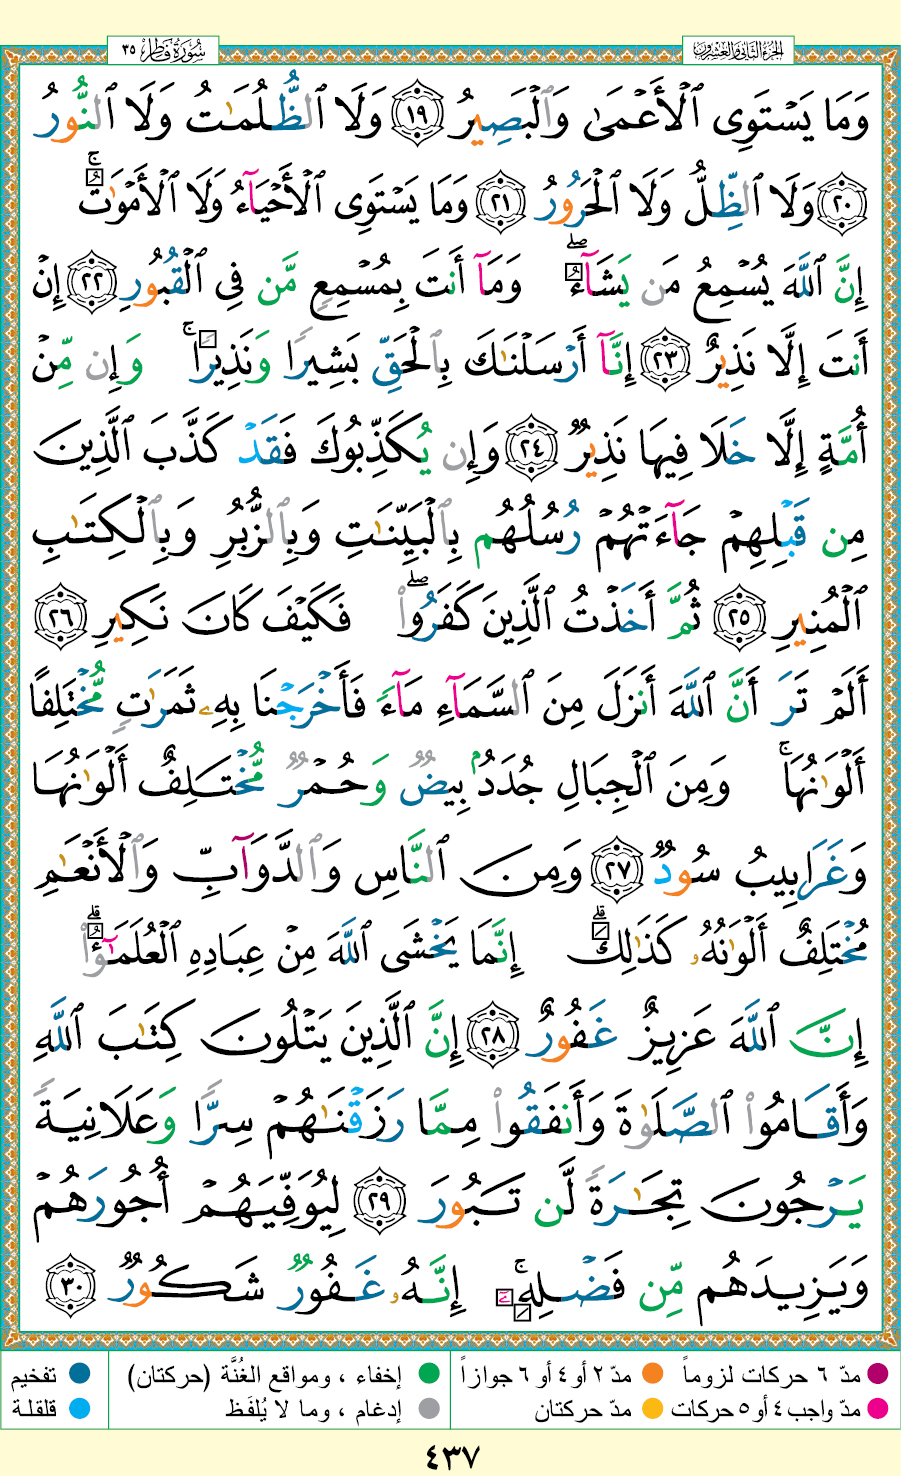 سُورَةُ فَاطِر ٣٥
الجزء الثاني والعشرون
وَمَا يَسْتَوِى ٱلْأَعْمَىٰ وَٱلْبَصِيرُ ١٩ وَلَا ٱلظُّلُمَٰتُ وَلَا ٱلنُّورُ
٢٠ وَلَا ٱلظِّلُّ وَلَا ٱلْحَرُورُ ٢١ وَمَا يَسْتَوِى ٱلْأَحْيَآءُ وَلَا ٱلْأَمْوَٰتُ ۚ
إِنَّ ٱللَّهَ يُسْمِعُ مَن يَشَآءُ ۖ وَمَآ أَنتَ بِمُسْمِعٍ مَّن فِى ٱلْقُبُورِ ٢٢ إِنْ
أَنتَ إِلَّا نَذِيرٌ ٢٣ إِنَّآ أَرْسَلْنَٰكَ بِٱلْحَقِّ بَشِيرًا وَنَذِيرًا ۚ وَإِن مِّنْ
أُمَّةٍ إِلَّا خَلَا فِيهَا نَذِيرٌ ٢٤ وَإِن يُكَذِّبُوكَ فَقَدْ كَذَّبَ ٱلَّذِينَ
مِن قَبْلِهِمْ جَآءَتْهُمْ رُسُلُهُم بِٱلْبَيِّنَٰتِ وَبِٱلزُّبُرِ وَبِٱلْكِتَٰبِ
ٱلْمُنِيرِ ٢٥ ثُمَّ أَخَذْتُ ٱلَّذِينَ كَفَرُوا۟ ۖ فَكَيْفَ كَانَ نَكِيرِ ٢٦
أَلَمْ تَرَ أَنَّ ٱللَّهَ أَنزَلَ مِنَ ٱلسَّمَآءِ مَآءً فَأَخْرَجْنَا بِهِۦ ثَمَرَٰتٍ مُّخْتَلِفًا
أَلْوَٰنُهَا ۚ وَمِنَ ٱلْجِبَالِ جُدَدٌۢ بِيضٌ وَحُمْرٌ مُّخْتَلِفٌ أَلْوَٰنُهَا
وَغَرَابِيبُ سُودٌ ٢٧ وَمِنَ ٱلنَّاسِ وَٱلدَّوَآبِّ وَٱلْأَنْعَٰمِ
مُخْتَلِفٌ أَلْوَٰنُهُۥ كَذَٰلِكَ ۗ إِنَّمَا يَخْشَى ٱللَّهَ مِنْ عِبَادِهِ ٱلْعُلَمَٰٓؤُا۟ ۗ
إِنَّ ٱللَّهَ عَزِيزٌ غَفُورٌ ٢٨ إِنَّ ٱلَّذِينَ يَتْلُونَ كِتَٰبَ ٱللَّهِ
وَأَقَامُوا۟ ٱلصَّلَوٰةَ وَأَنفَقُوا۟ مِمَّا رَزَقْنَٰهُمْ سِرًّا وَعَلَانِيَةً
يَرْجُونَ تِجَٰرَةً لَّن تَبُورَ ٢٩ لِيُوَفِّيَهُمْ أُجُورَهُمْ
وَيَزِيدَهُم مِّن فَضْلِهِۦٓ ۚ إِنَّهُۥ غَفُورٌ شَكُورٌ ٣٠
مدّ ٦ حركات لزوماً مدّ ٢ أو ٤ أو ٦ جوازاً إخفاء ، ومواقع الغُنَّة (حركتان) تفخيم
مدّ واجب ٤ أو ٥ حركات مدّ حركتان إدغام ، وما لا يُلفَظ قلقلة
٤٣٧